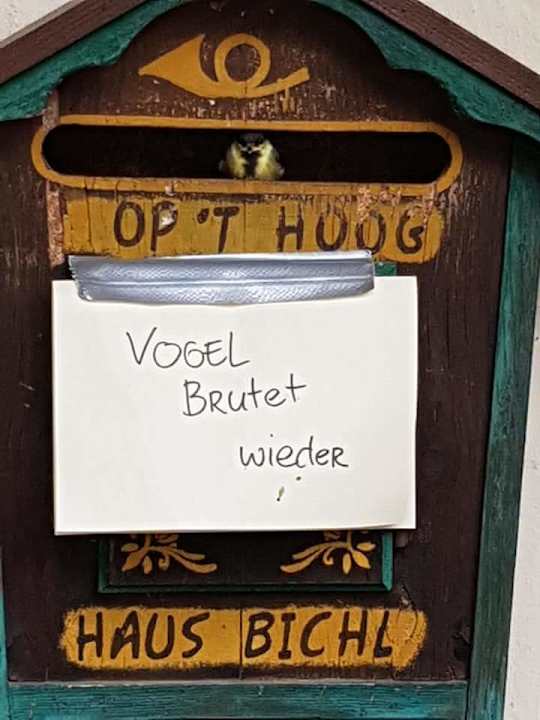 OP 'T HOOG
VOGEL
Brutet
wieder
HAUS BICHL